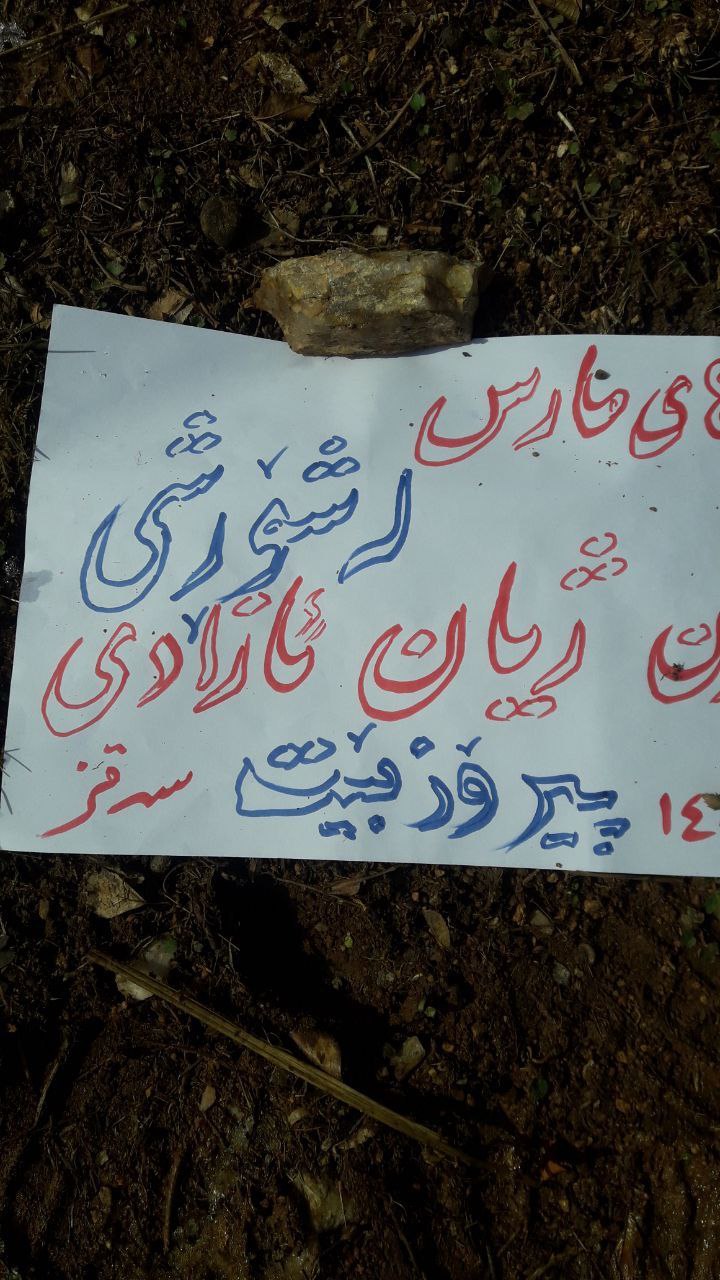 ی مارس
شۆڕشی
ژیان ئازادی
١٤ پیرۆز بێت سەقز